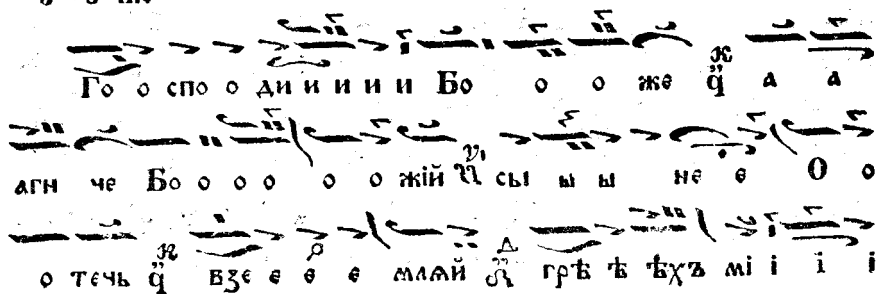 Го о спо о ди и и и и Бо о о же а а
агн че Бо о о о о о жїй сы ы ы не е О о
о течь взе е е е мляй грѣ ѣ ѣхъ мі і і і